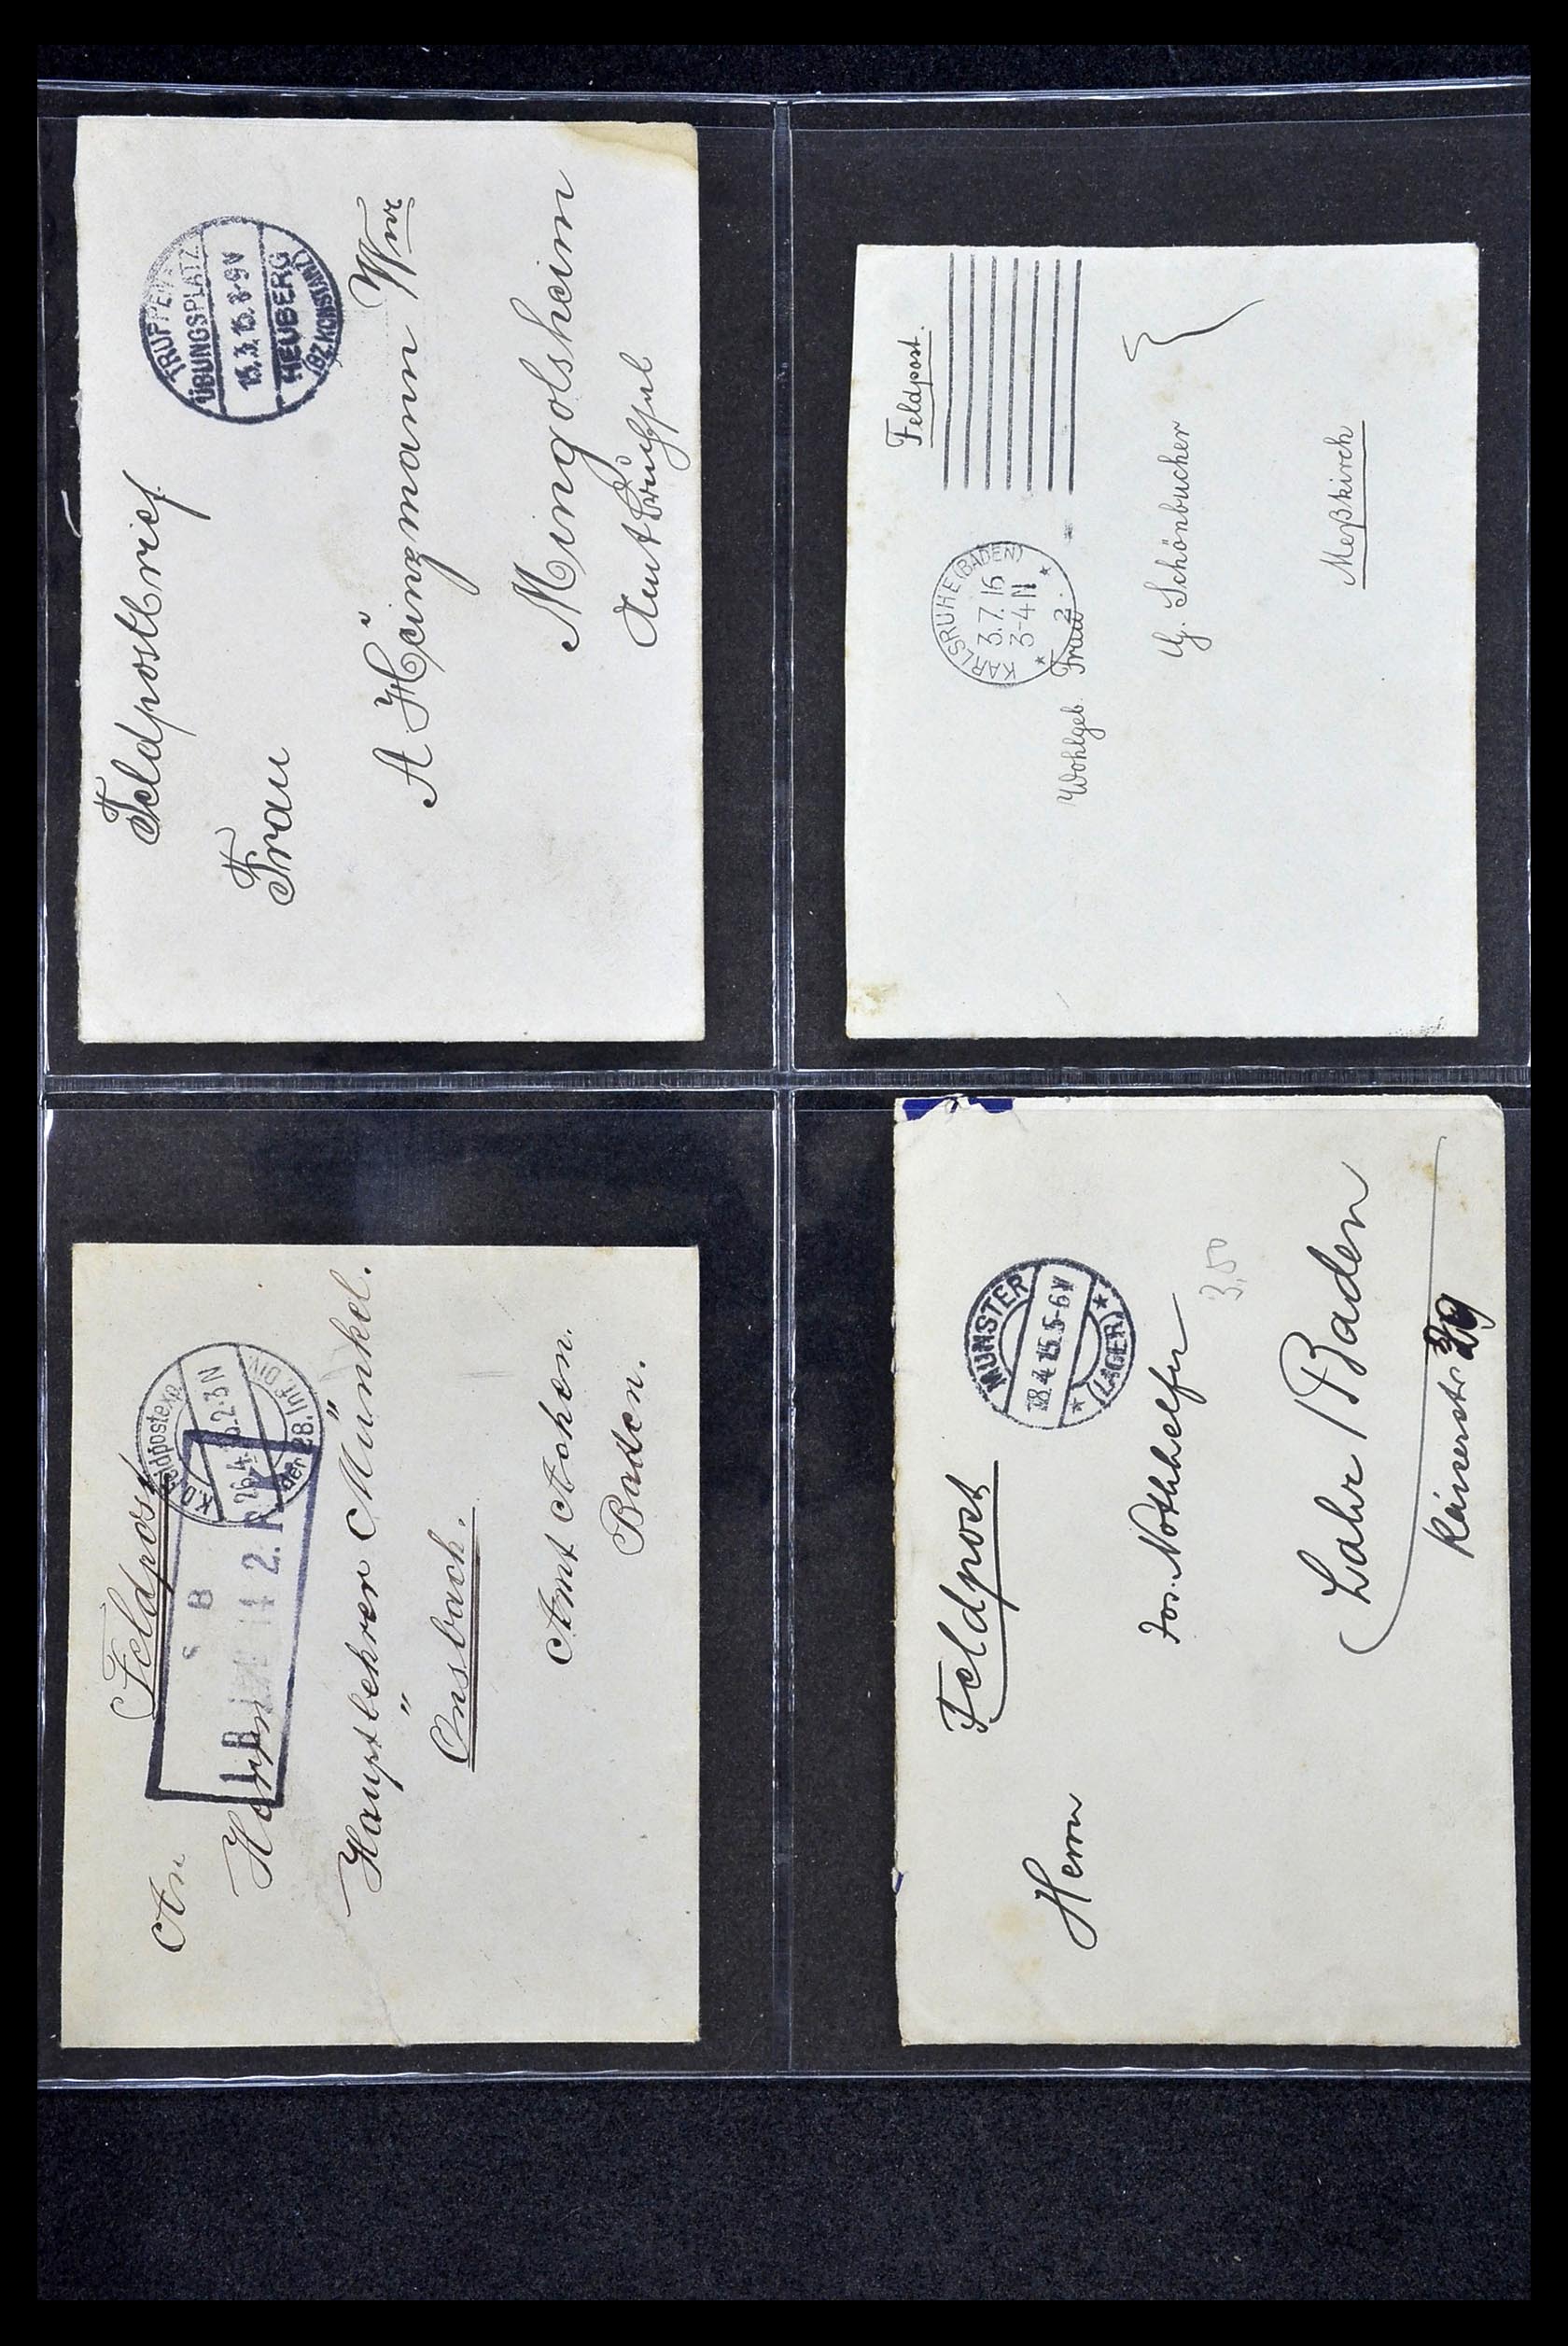 Feldpostbrief
TRUPPEN-
ÜBUNGSPLATZ
15.3.15. 8-9V
HEUBERG
(BZ. KONSTANZ)
Frau
A Heinzmann Wwe
Mingolsheim
Amt Bruchsal
Feldpost.
KARLSRUHE (BADEN)
3.7.16
3-4 N
* 2. *
Wohlgeb. Frau
G. Schönbucher
Meßkirch
Feldpost
Feldpostexp.
26.4. 2-3N
der 28. Inf. Div.
S B
An
Herrn
Hauptlehrer Münkel.
" Önsbach.
Amt Achern.
Baden.
Feldpost
MUNSTER
18.4.15. 5-6V
* (LAGER) *
Herrn
Jos. Nothhelfer
3,50
Lahr / Baden
Kaiserstr.